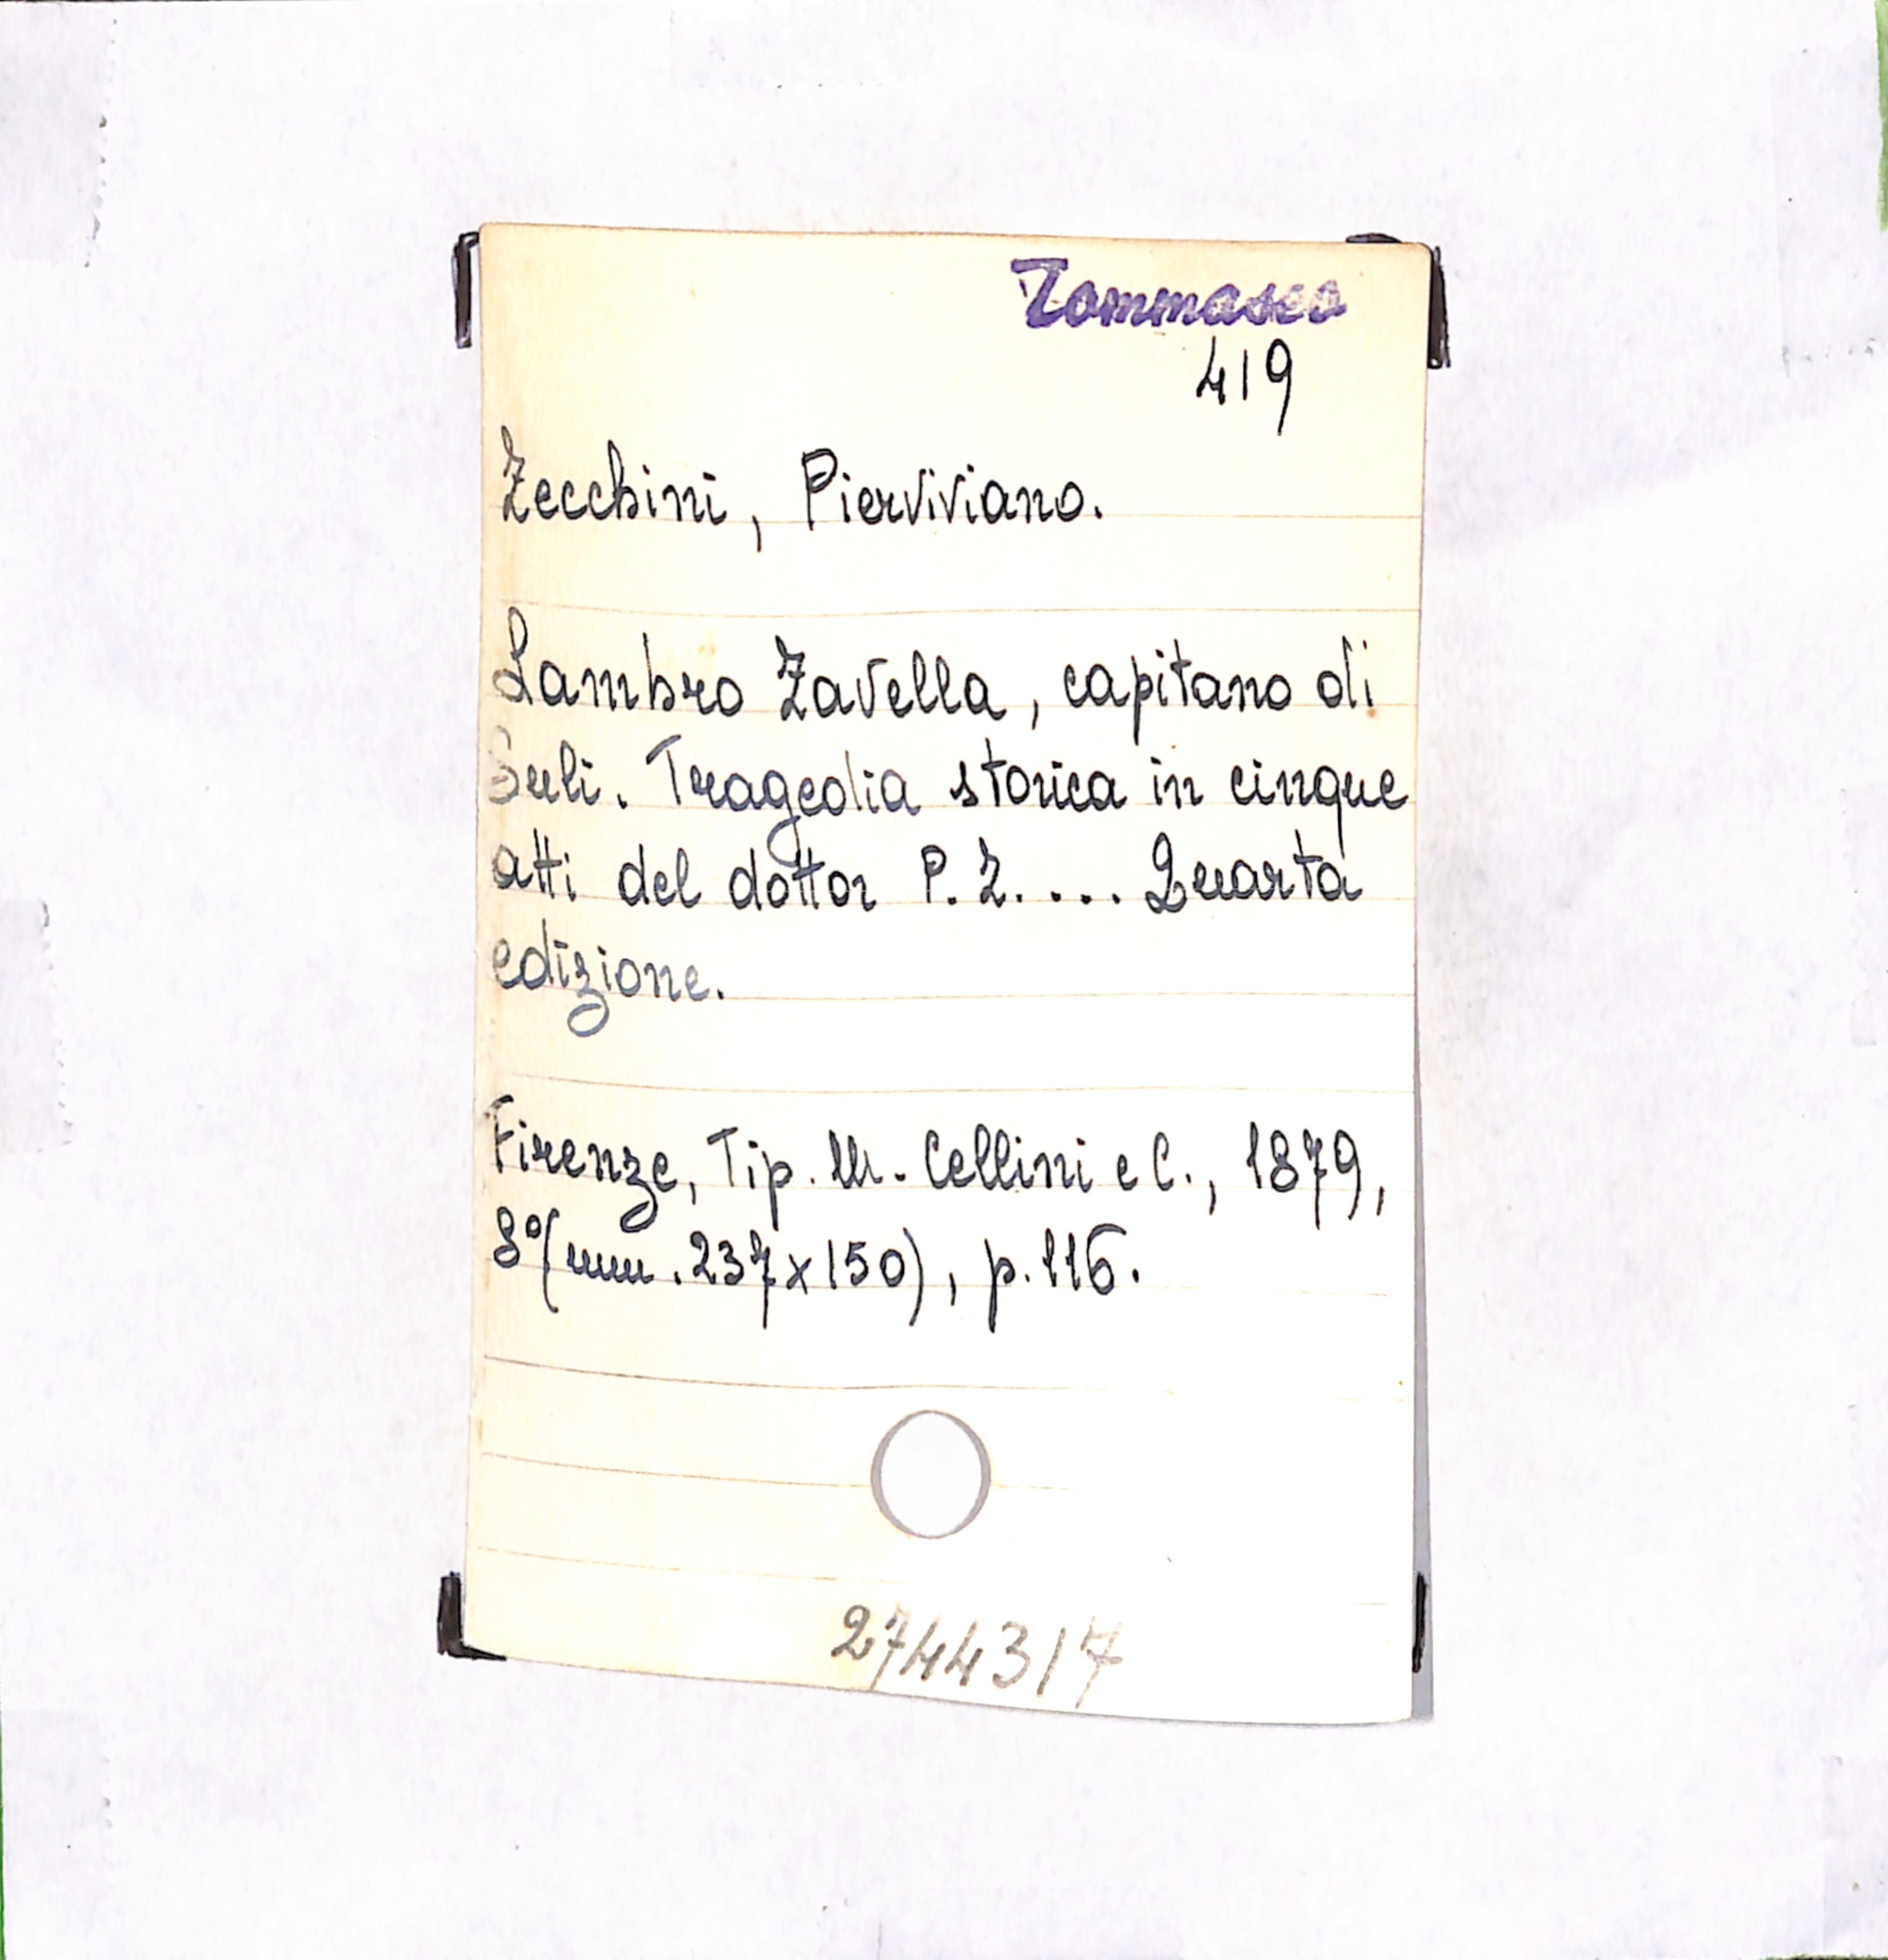 Tommaseo
419
Zecchini, Pierviviano.
Lambro Zavella, capitano di
Suli. Tragedia storica in cinque
atti del dottor P. Z. ... Quarta
edizione.
Firenze, Tip. M. Cellini e C., 1879,
8°(mm. 237x150), p. 116.
2744317